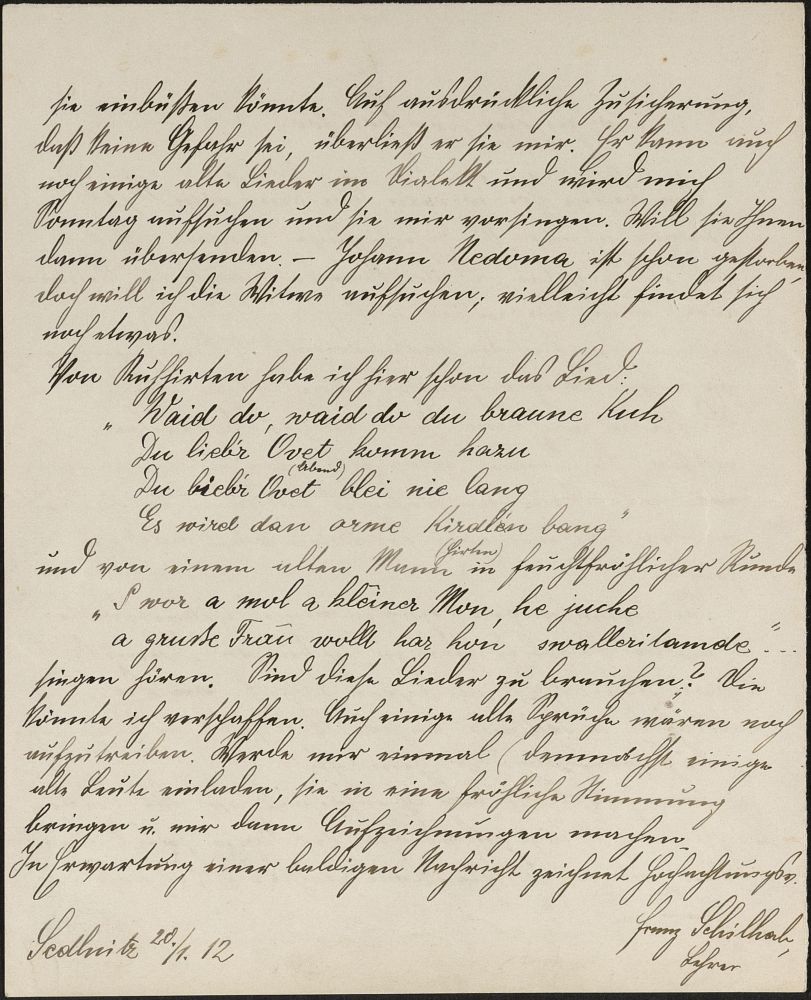 sie einbüßen könnte. Auf ausdrückliche Zusicherung,
daß keine Gefahr sei, überließ er sie mir. Er kann auch
noch einige alte Lieder im Dialekt und wird mich
Sonntag aufsuchen und sie mir vorsingen. Will sie Ihnen
dann übersenden. – Johann Nedoma ist schon gestorben,
doch will ich die Witwe aufsuchen; vielleicht findet sich
noch etwas.
Von Kuhhirten habe ich hier schon das Lied:
„Waid do, waid do du braune Kuh
Du liebr Ovet komm hazu
(Abend)
Du liebr Ovet blei nie lang
Es wird dan orme Hirdlen bang"
(Hirten)
und von einem alten Mann in feuchtfröhlicher Runde
„S wor a mol a kleiner Mon, he juche
a gruße Frau wollt har hon swallerilamde"...
singen hören. Sind diese Lieder zu brauchen? Die
könnte ich verschaffen. Auch einige alte Sprüche wären noch
aufzutreiben. Werde mir einmal (demnächst einige
alte Leute einladen, sie in eine fröhliche Stimmung
bringen u. mir dann Aufzeichnungen machen.
In Erwartung einer baldigen Nachricht zeichnet hochachtungsv.
Franz Schilhab,
Lehrer
Sedlnitz 28./1. 12